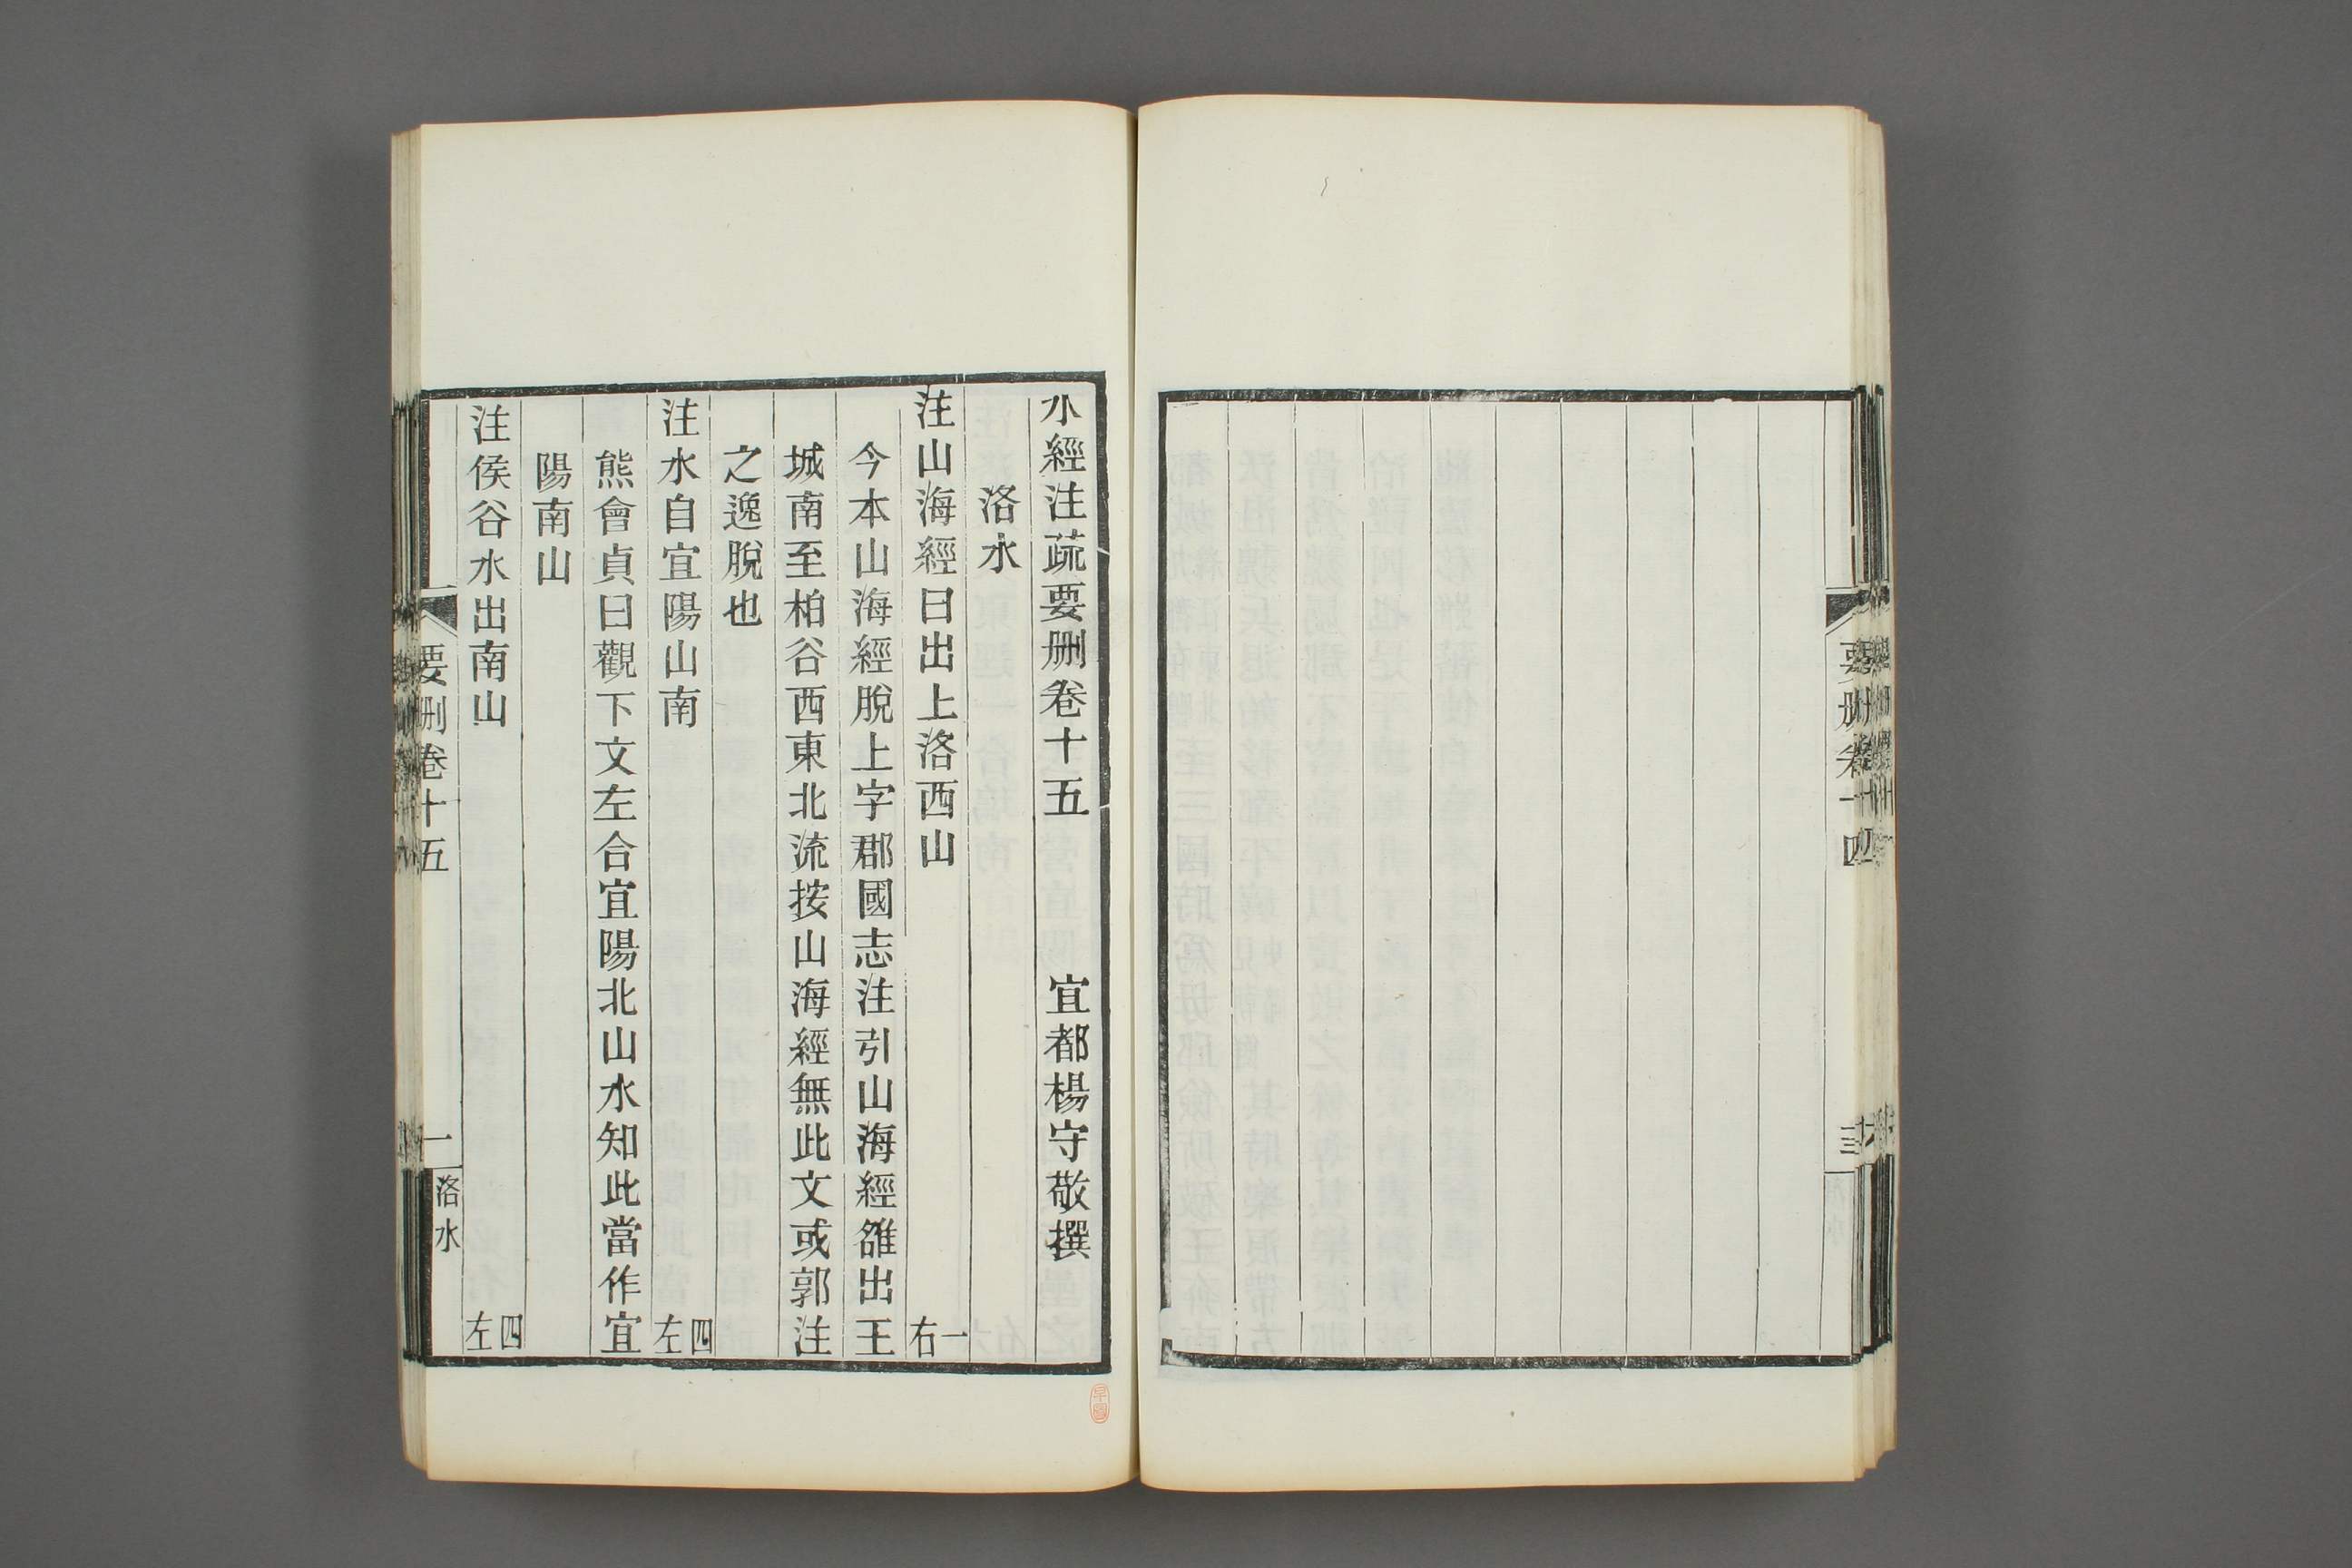 要刪卷十四
水經注疏要刪卷十五　宜都楊守敬撰
洛水
注山海經曰出上洛西山　一右
今本山海經脫上字郡國志注引山海經雒出王
城南至柏谷西東北流按山海經無此文或郭注
之逸脫也
注水自宜陽山南　四左
熊會貞曰觀下文左合宜陽北山水知此當作宜
陽南山
注侯谷水出南山　四左
要刪卷十五　一　洛水